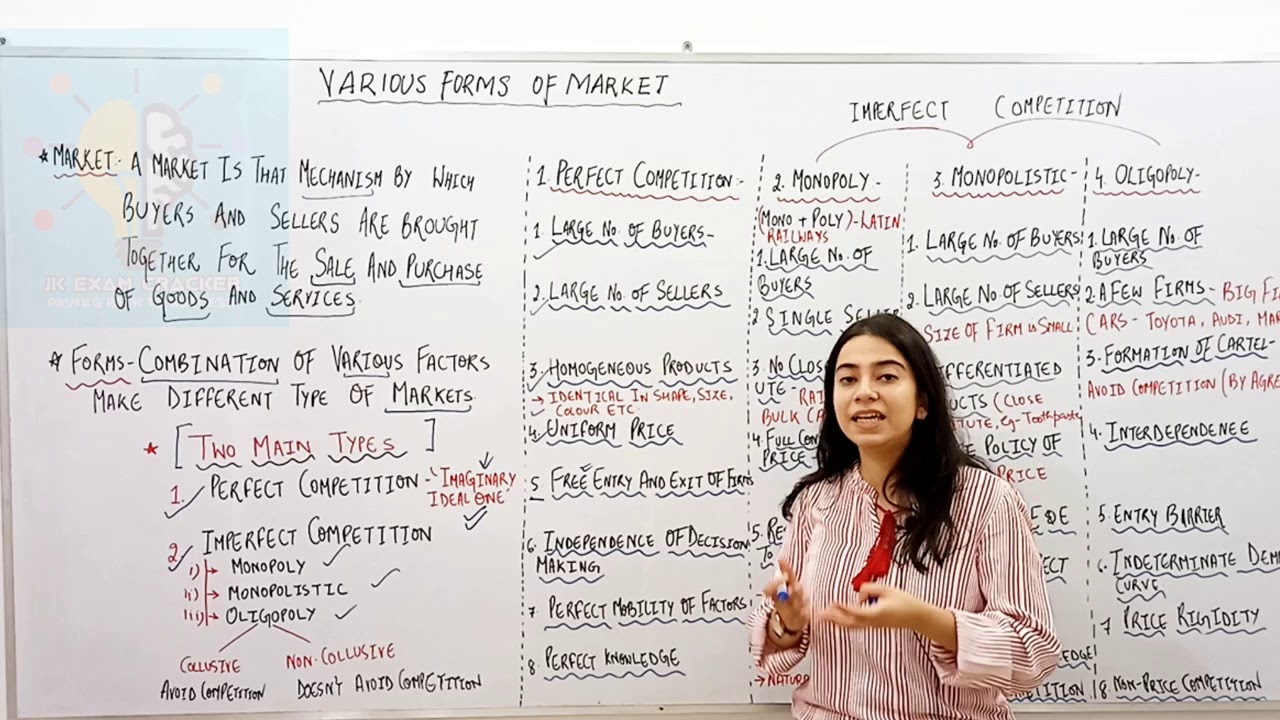 VARIOUS FORMS OF MARKET
IMPERFECT COMPETITION
* MARKET:- A MARKET IS THAT MECHANISM BY WHICH
BUYERS AND SELLERS ARE BROUGHT
TOGETHER FOR THE SALE AND PURCHASE
OF GOODS AND SERVICES.
JK EXAM CRACKER
* FORMS- COMBINATION OF VARIOUS FACTORS
MAKE DIFFERENT TYPE OF MARKETS.
* [TWO MAIN TYPES]
1. PERFECT COMPETITION - "IMAGINARY
IDEAL ONE"
2. IMPERFECT COMPETITION
i) → MONOPOLY
ii) → MONOPOLISTIC
iii) → OLIGOPOLY
COLLUSIVE
AVOID COMPETITION
NON-COLLUSIVE
DOESN'T AVOID COMPETITION
1. PERFECT COMPETITION:-
1. LARGE NO. OF BUYERS-
2. LARGE NO. OF SELLERS
3. HOMOGENEOUS PRODUCTS
→ IDENTICAL IN SHAPE, SIZE,
COLOUR ETC.
4. UNIFORM PRICE
5. FREE ENTRY AND EXIT OF FIRMS
6. INDEPENDENCE OF DECISION
MAKING
7 PERFECT MOBILITY OF FACTORS
8. PERFECT KNOWLEDGE
2. MONOPOLY -
(MONO + POLY)-LATIN
RAILWAYS
1. LARGE NO. OF
BUYERS
2 SINGLE
3. NO
UTE -
BULK
4. FULL
PRICE -
5.
3. MONOPOLISTIC-
1. LARGE NO. OF BUYERS
2. LARGE NO. OF SELLERS
SIZE OF FIRM IS SMALL
(CLOSE
eg- Toothpaste
POLICY OF
PRICE
4. OLIGOPOLY-
1. LARGE NO. OF
BUYERS
2. A FEW FIRMS - BIG
CARS - TOYOTA, AUDI,
3. FORMATION OF CARTEL-
AVOID COMPETITION (BY
4. INTERDEPENDENEE
5. ENTRY BARRIER
6. INDETERMINATE
CURVE
7 PRICE RIGIDITY
8. NON-PRICE COMPETITION